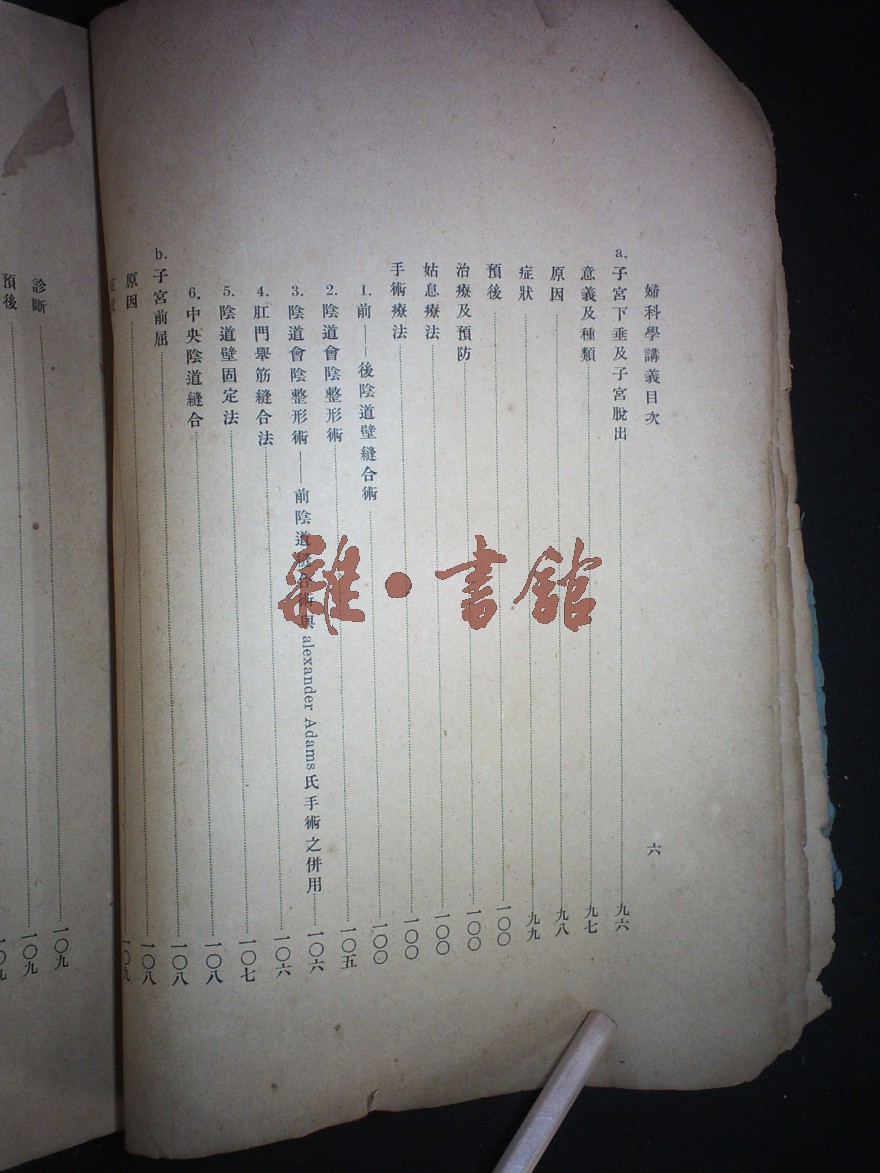 婦科學講義目次 六
a. 子宮下垂及子宮脫出 九六
意義及種類 九七
原因 九八
症狀 九九
預後 一〇〇
治療及預防 一〇〇
姑息療法 一〇〇
手術療法 一〇〇
1. 前——後陰道壁縫合術 一〇〇
2. 陰道會陰整形術 一〇五
3. 陰道會陰整形術——前陰道縫合術與 alexander Adams 氏手術之併用 一〇六
4. 肛門舉筋縫合法 一〇六
5. 陰道壁固定法 一〇七
6. 中央陰道縫合 一〇八
b. 子宮前屈 一〇八
原因 一〇八
症狀 一〇九
診斷 一〇九
預後 一〇九
一〇九
雜·書館